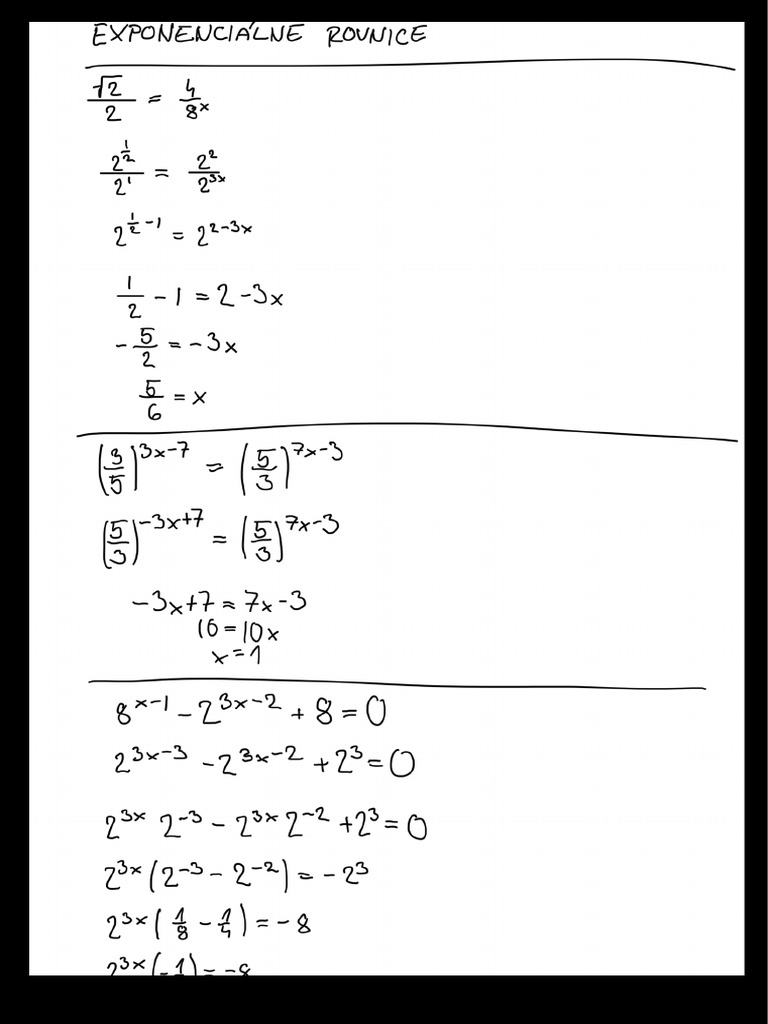 EXPONENCIÁLNE ROVNICE
√2/2 = 4/8^x
2^(1/2)/2^1 = 2^2/2^(3x)
2^(1/2 - 1) = 2^(2-3x)
1/2 - 1 = 2 - 3x
-5/2 = -3x
5/6 = x
(3/5)^(3x-7) = (5/3)^(7x-3)
(5/3)^(-3x+7) = (5/3)^(7x-3)
-3x+7 = 7x-3
10 = 10x
x = 1
8^(x-1) - 2^(3x-2) + 8 = 0
2^(3x-3) - 2^(3x-2) + 2^3 = 0
2^(3x) 2^(-3) - 2^(3x) 2^(-2) + 2^3 = 0
2^(3x) (2^(-3) - 2^(-2)) = -2^3
2^(3x) (1/8 - 1/4) = -8